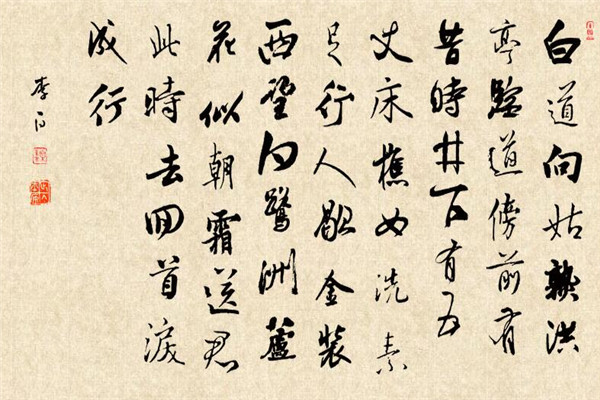 白道向姑熟洪
亭臨道傍前有
昔時井下有五
丈床樵女洗素
足行人歇金裝
西望白鷺洲蘆
花似朝霜送君
此時去回首淚
成行
李白